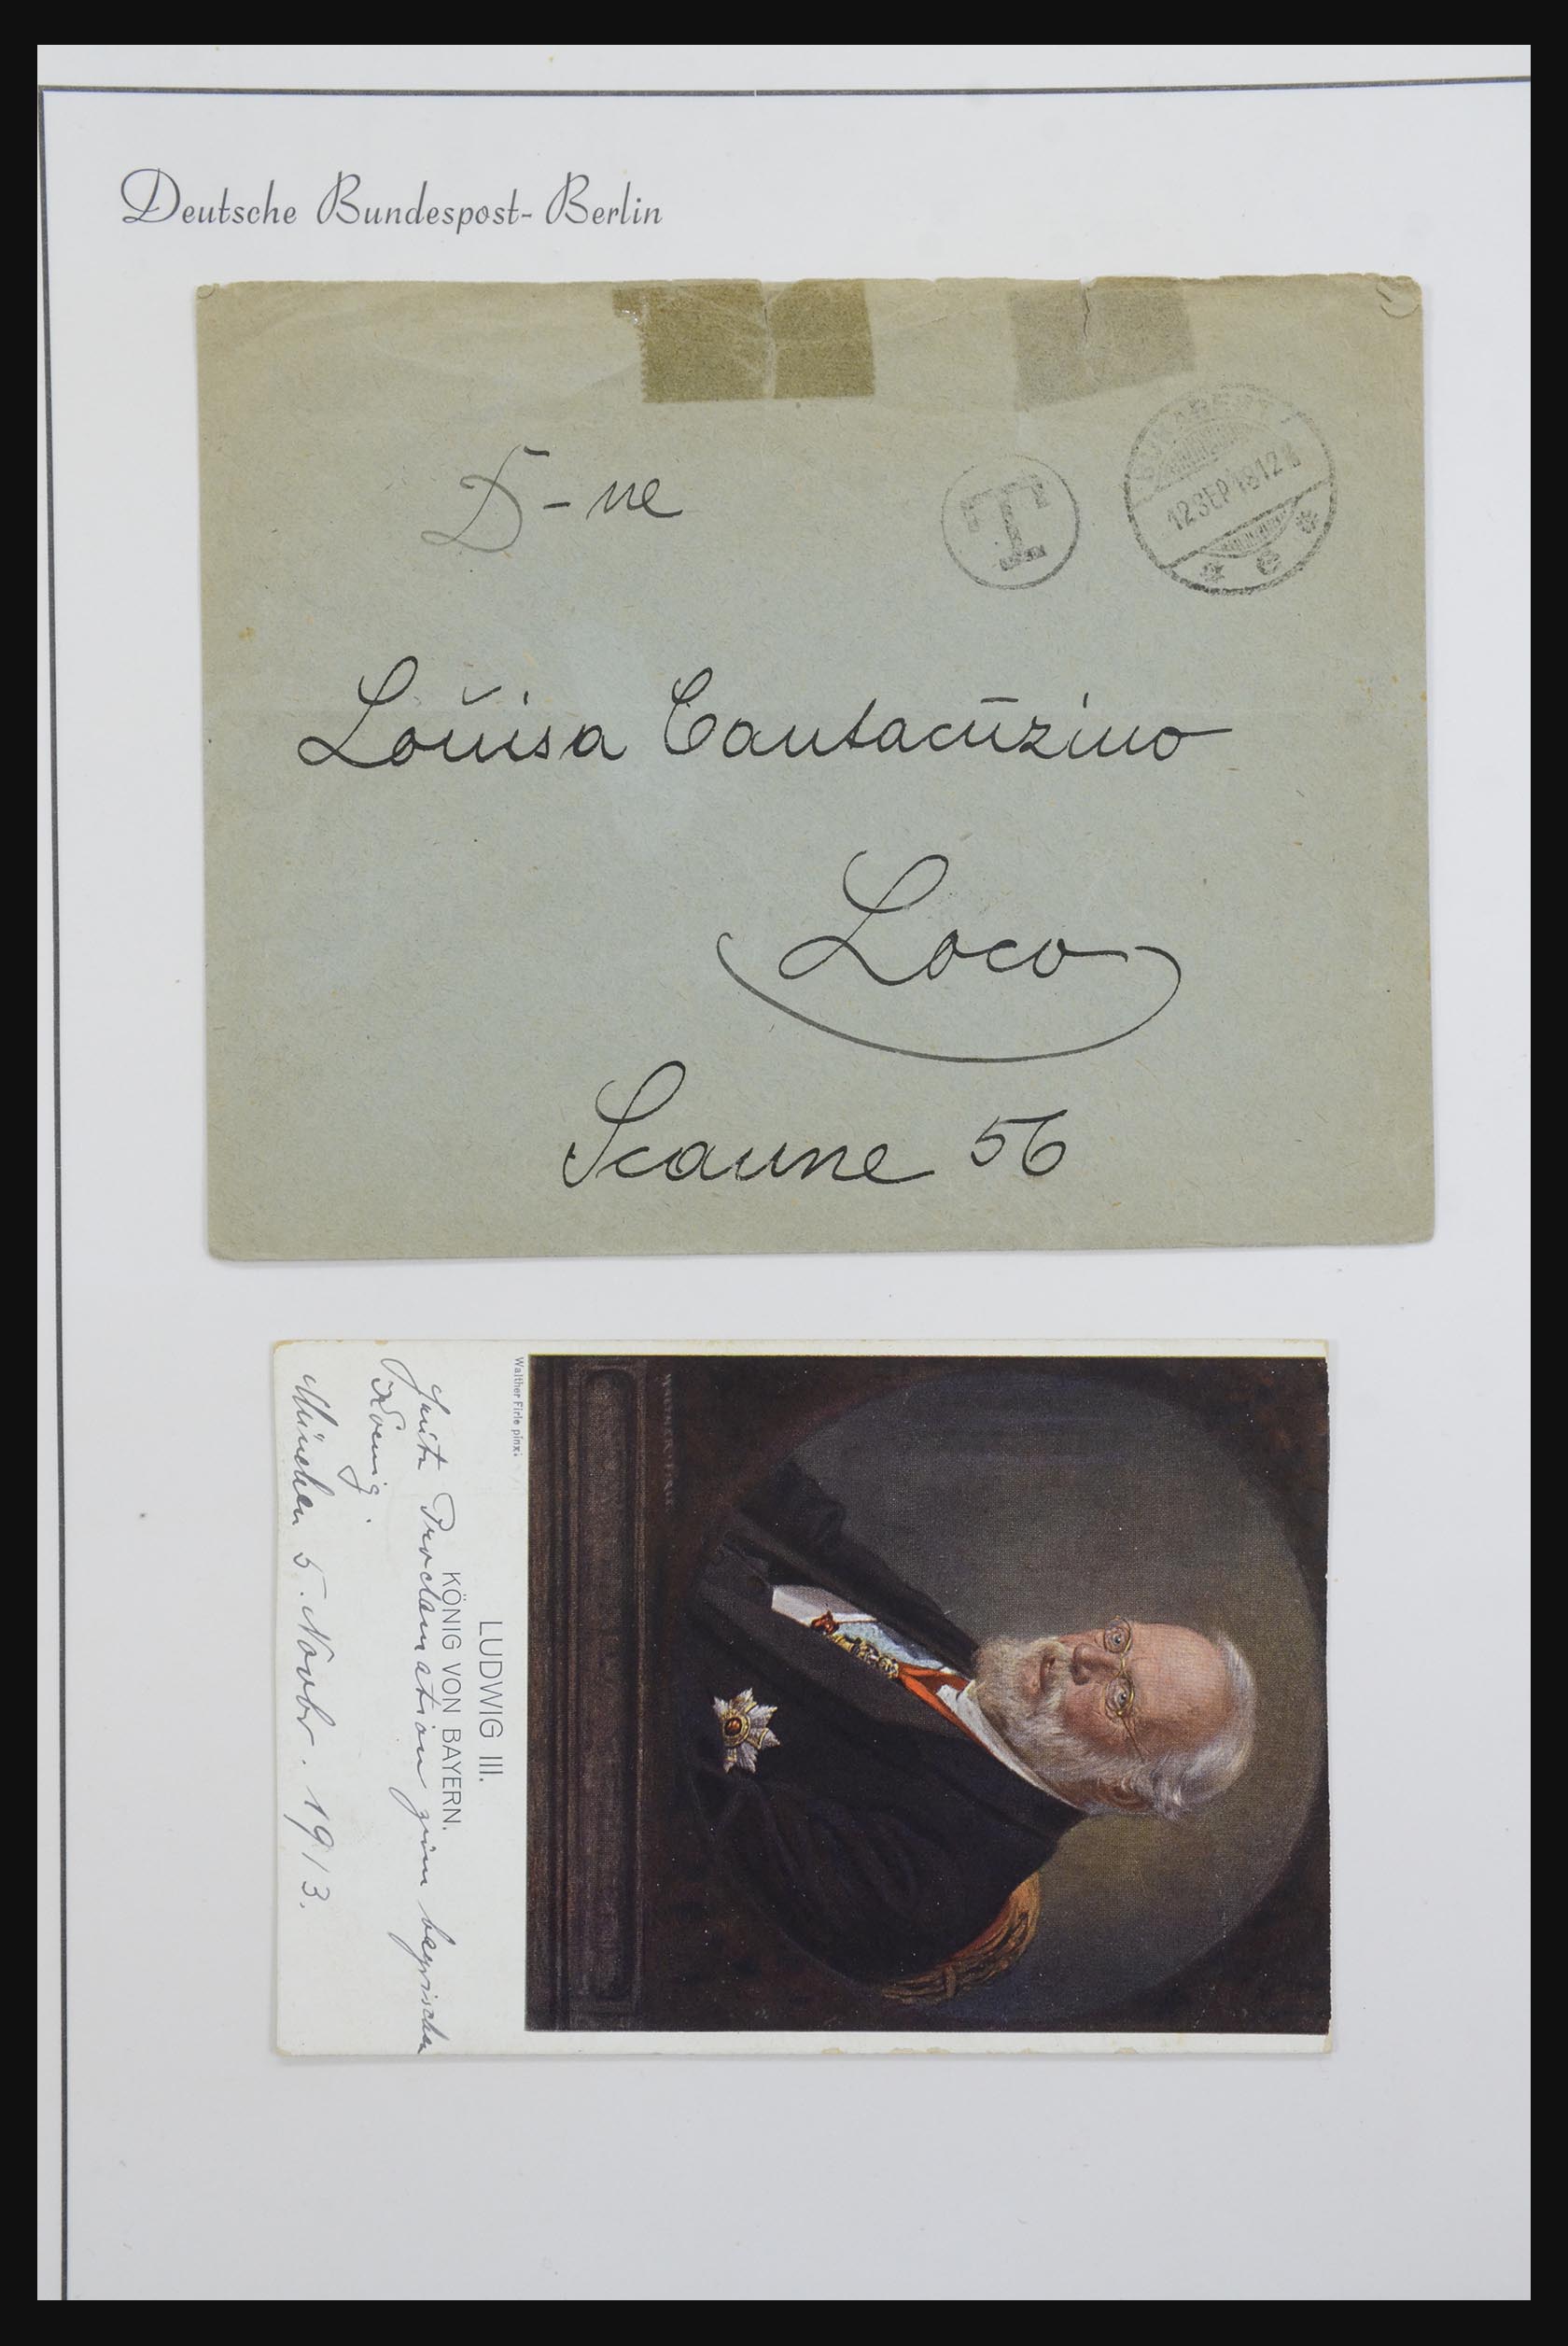 Deutsche Bundespost-Berlin
D-ne
T
12 SEP 18 12
Louisa Cantacuzino
Loco
Scaune 56
Walther Firle pinx.
LUDWIG III.
KÖNIG VON BAYERN.
Proclamation zum bayrischen
Koenig.
München 5. Novbr. 1913.